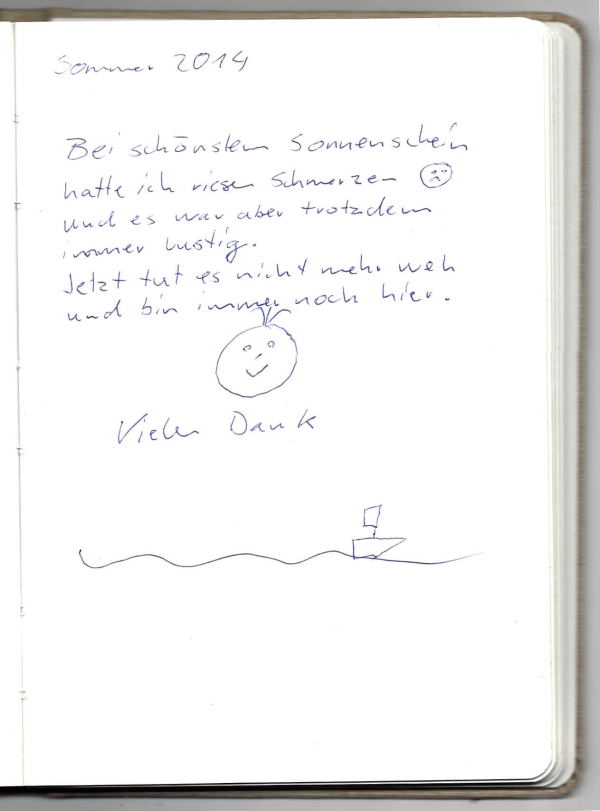 Sommer 2014
Bei schönstem Sonnenschein
hatte ich riesen Schmerzen
und es war aber trotzdem
immer lustig.
Jetzt tut es nicht mehr weh
und bin immer noch hier.
Vielen Dank